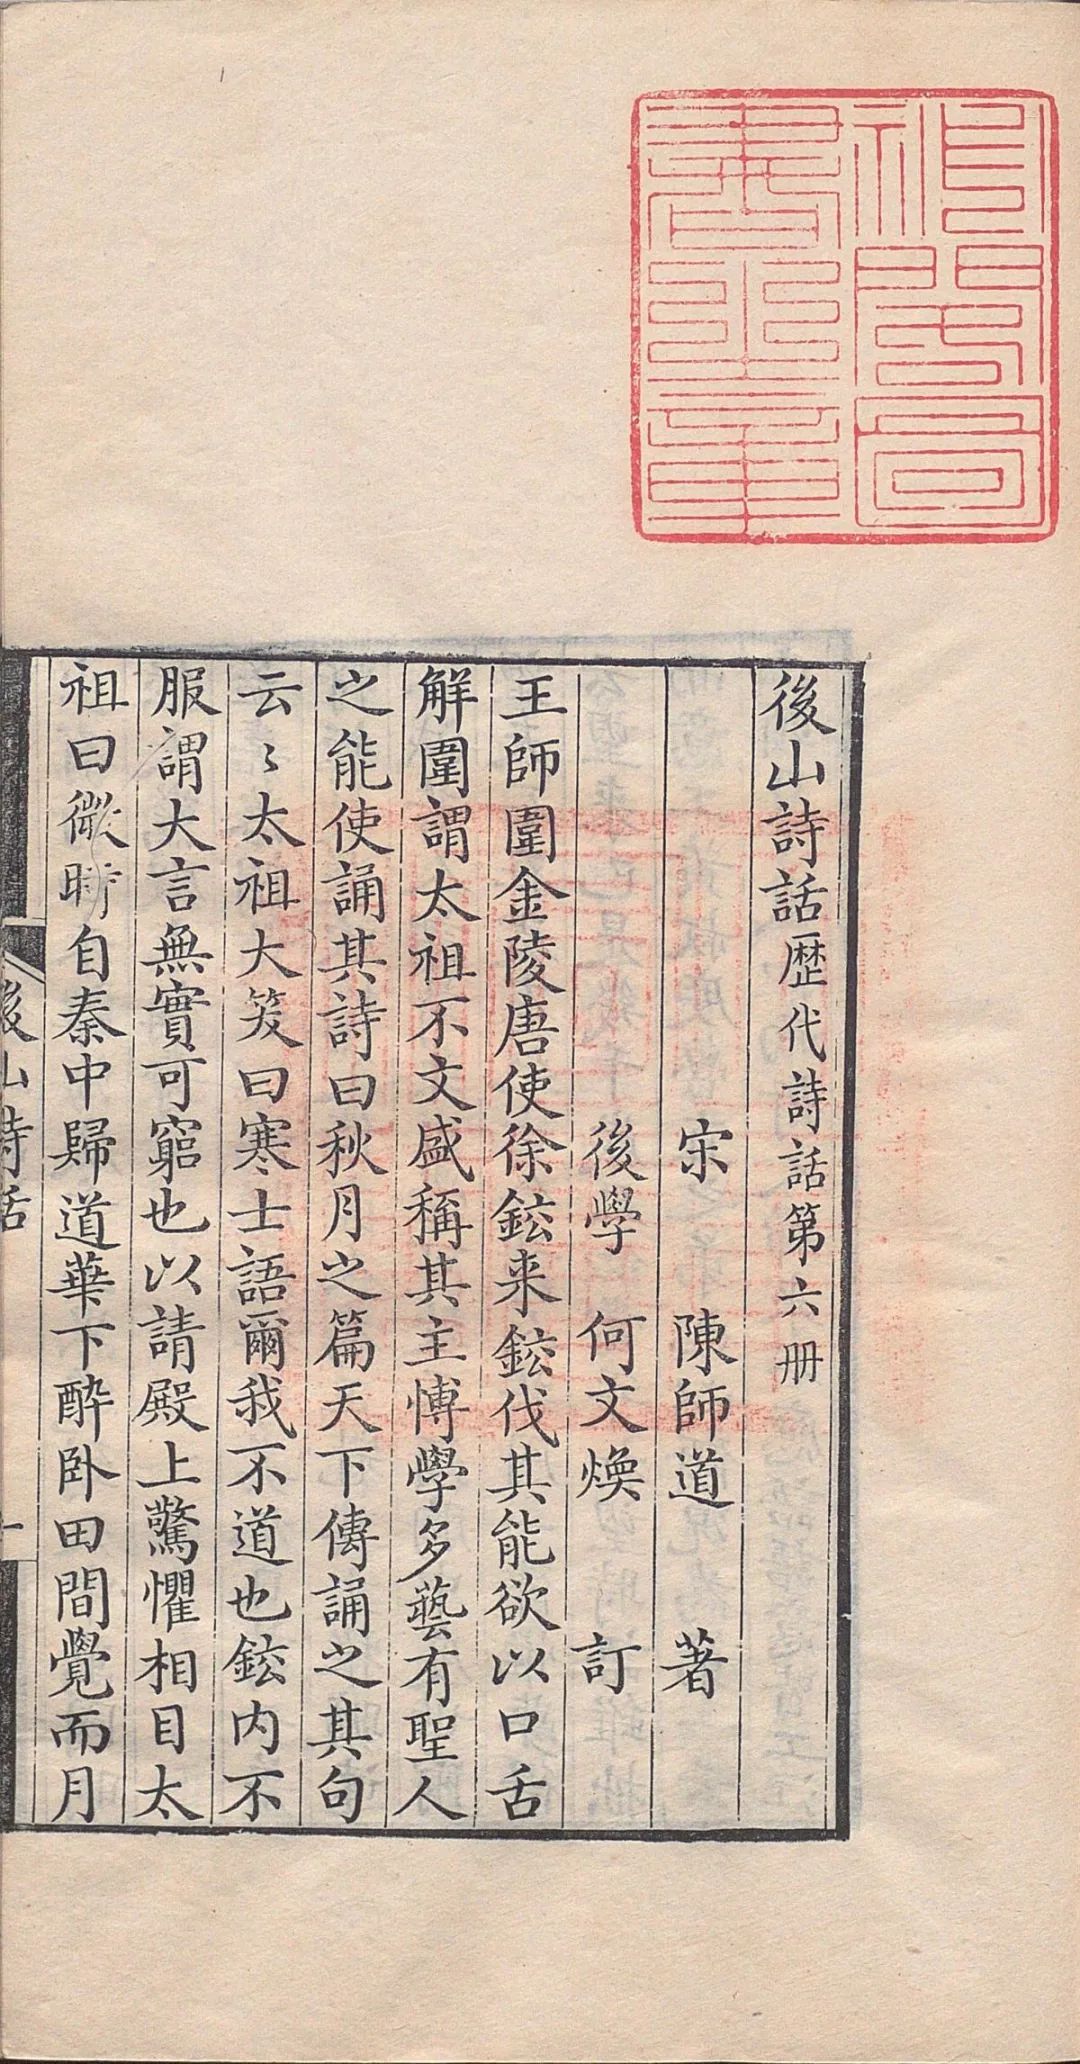 後山詩話歷代詩話第六册
宋 陳師道 著
後學 何文煥 訂
王師圍金陵唐使徐鉉来鉉伐其能欲以口舌
解圍謂太祖不文盛稱其主博學多藝有聖人
之能使誦其詩曰秋月之篇天下傳誦之其句
云〻太祖大笑曰寒士語爾我不道也鉉内不
服謂大言無實可窮也以請殿上驚懼相目太
祖曰微時自秦中歸道華下醉卧田間覺而月
後山詩話 一